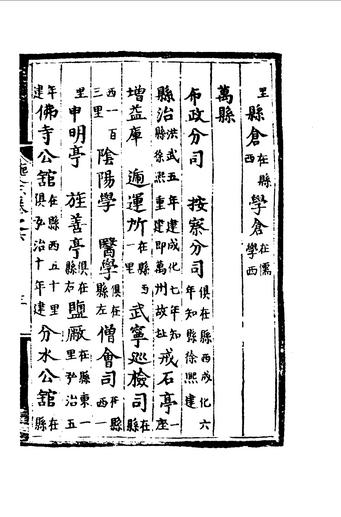 里縣倉在縣西學倉在儒學西
萬縣
布政分司 按察分司俱在縣西成化六年知縣徐熙建
縣治洪武五年建成化七年知縣徐熙重建即萬州故址戒石亭一座
增益庫 遞運所在縣西一里武寧巡檢司在縣
西一百三里陰陽學 醫學俱在縣左僧會司在縣西一
里申明亭 旌善亭俱在縣右鹽廠在縣東一里弘治五
年建佛寺公舘在縣西五十里俱弘治十年建分水公舘在縣